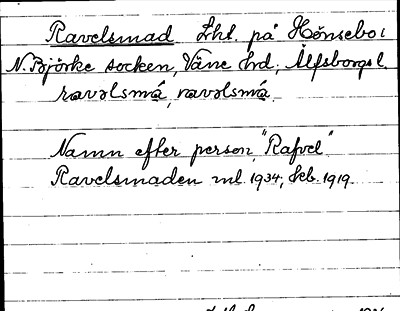 Ravelsmad Lht. på Hönsebo i
N. Björke socken, Väne hrd, Älfsborgs l.
ravəlsmá, ravəlsmá.
Namn efter person, "Rafvel".
Ravelsmaden ml. 1934, Heb. 1919.